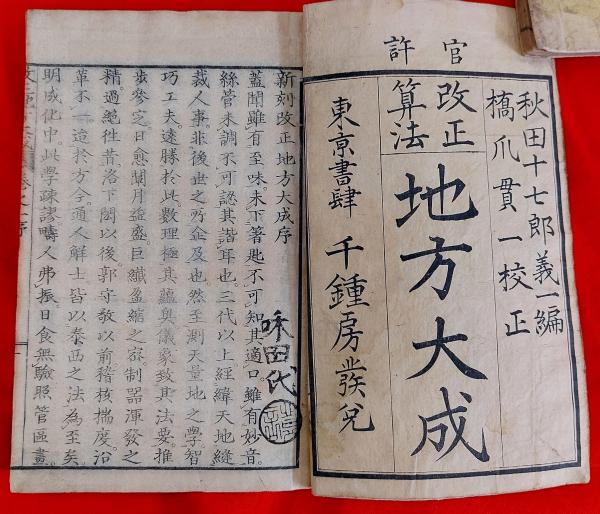 官許
秋田十七郎義一編
橋爪貫一校正
改正
算法
地方大成
東京書肆 千鍾房發兌
新刻改正地方大成序
蓋聞雖有至味未下箸匙不可知其適口雖有妙音
絲管未調不可認其諧耳也三代以上經緯天地縫
裁人事非後世之所企及也然至測天量地之學智
巧工夫遠勝於此數理極其蘊奧儀象致其法要推
步參定日愈闢月益盛巨纖盈縮之密制器渾發之
精過絕往昔洛下閎以後郭守敬以前稽核揣度沿
革不一迨於方今通人解士皆以泰西之法為至矣
明成化中此學疎謬疇人弗振日食無驗照管區畫
味田氏